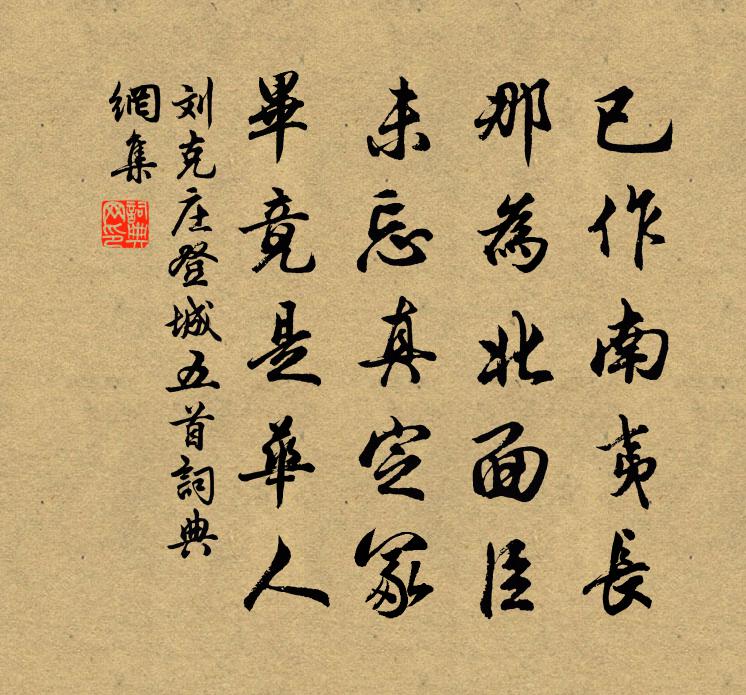 已作南夷長
那為北面臣
未忘真定冢
畢竟是華人
刘克庄登城五首詞典
網集
詞典
网印